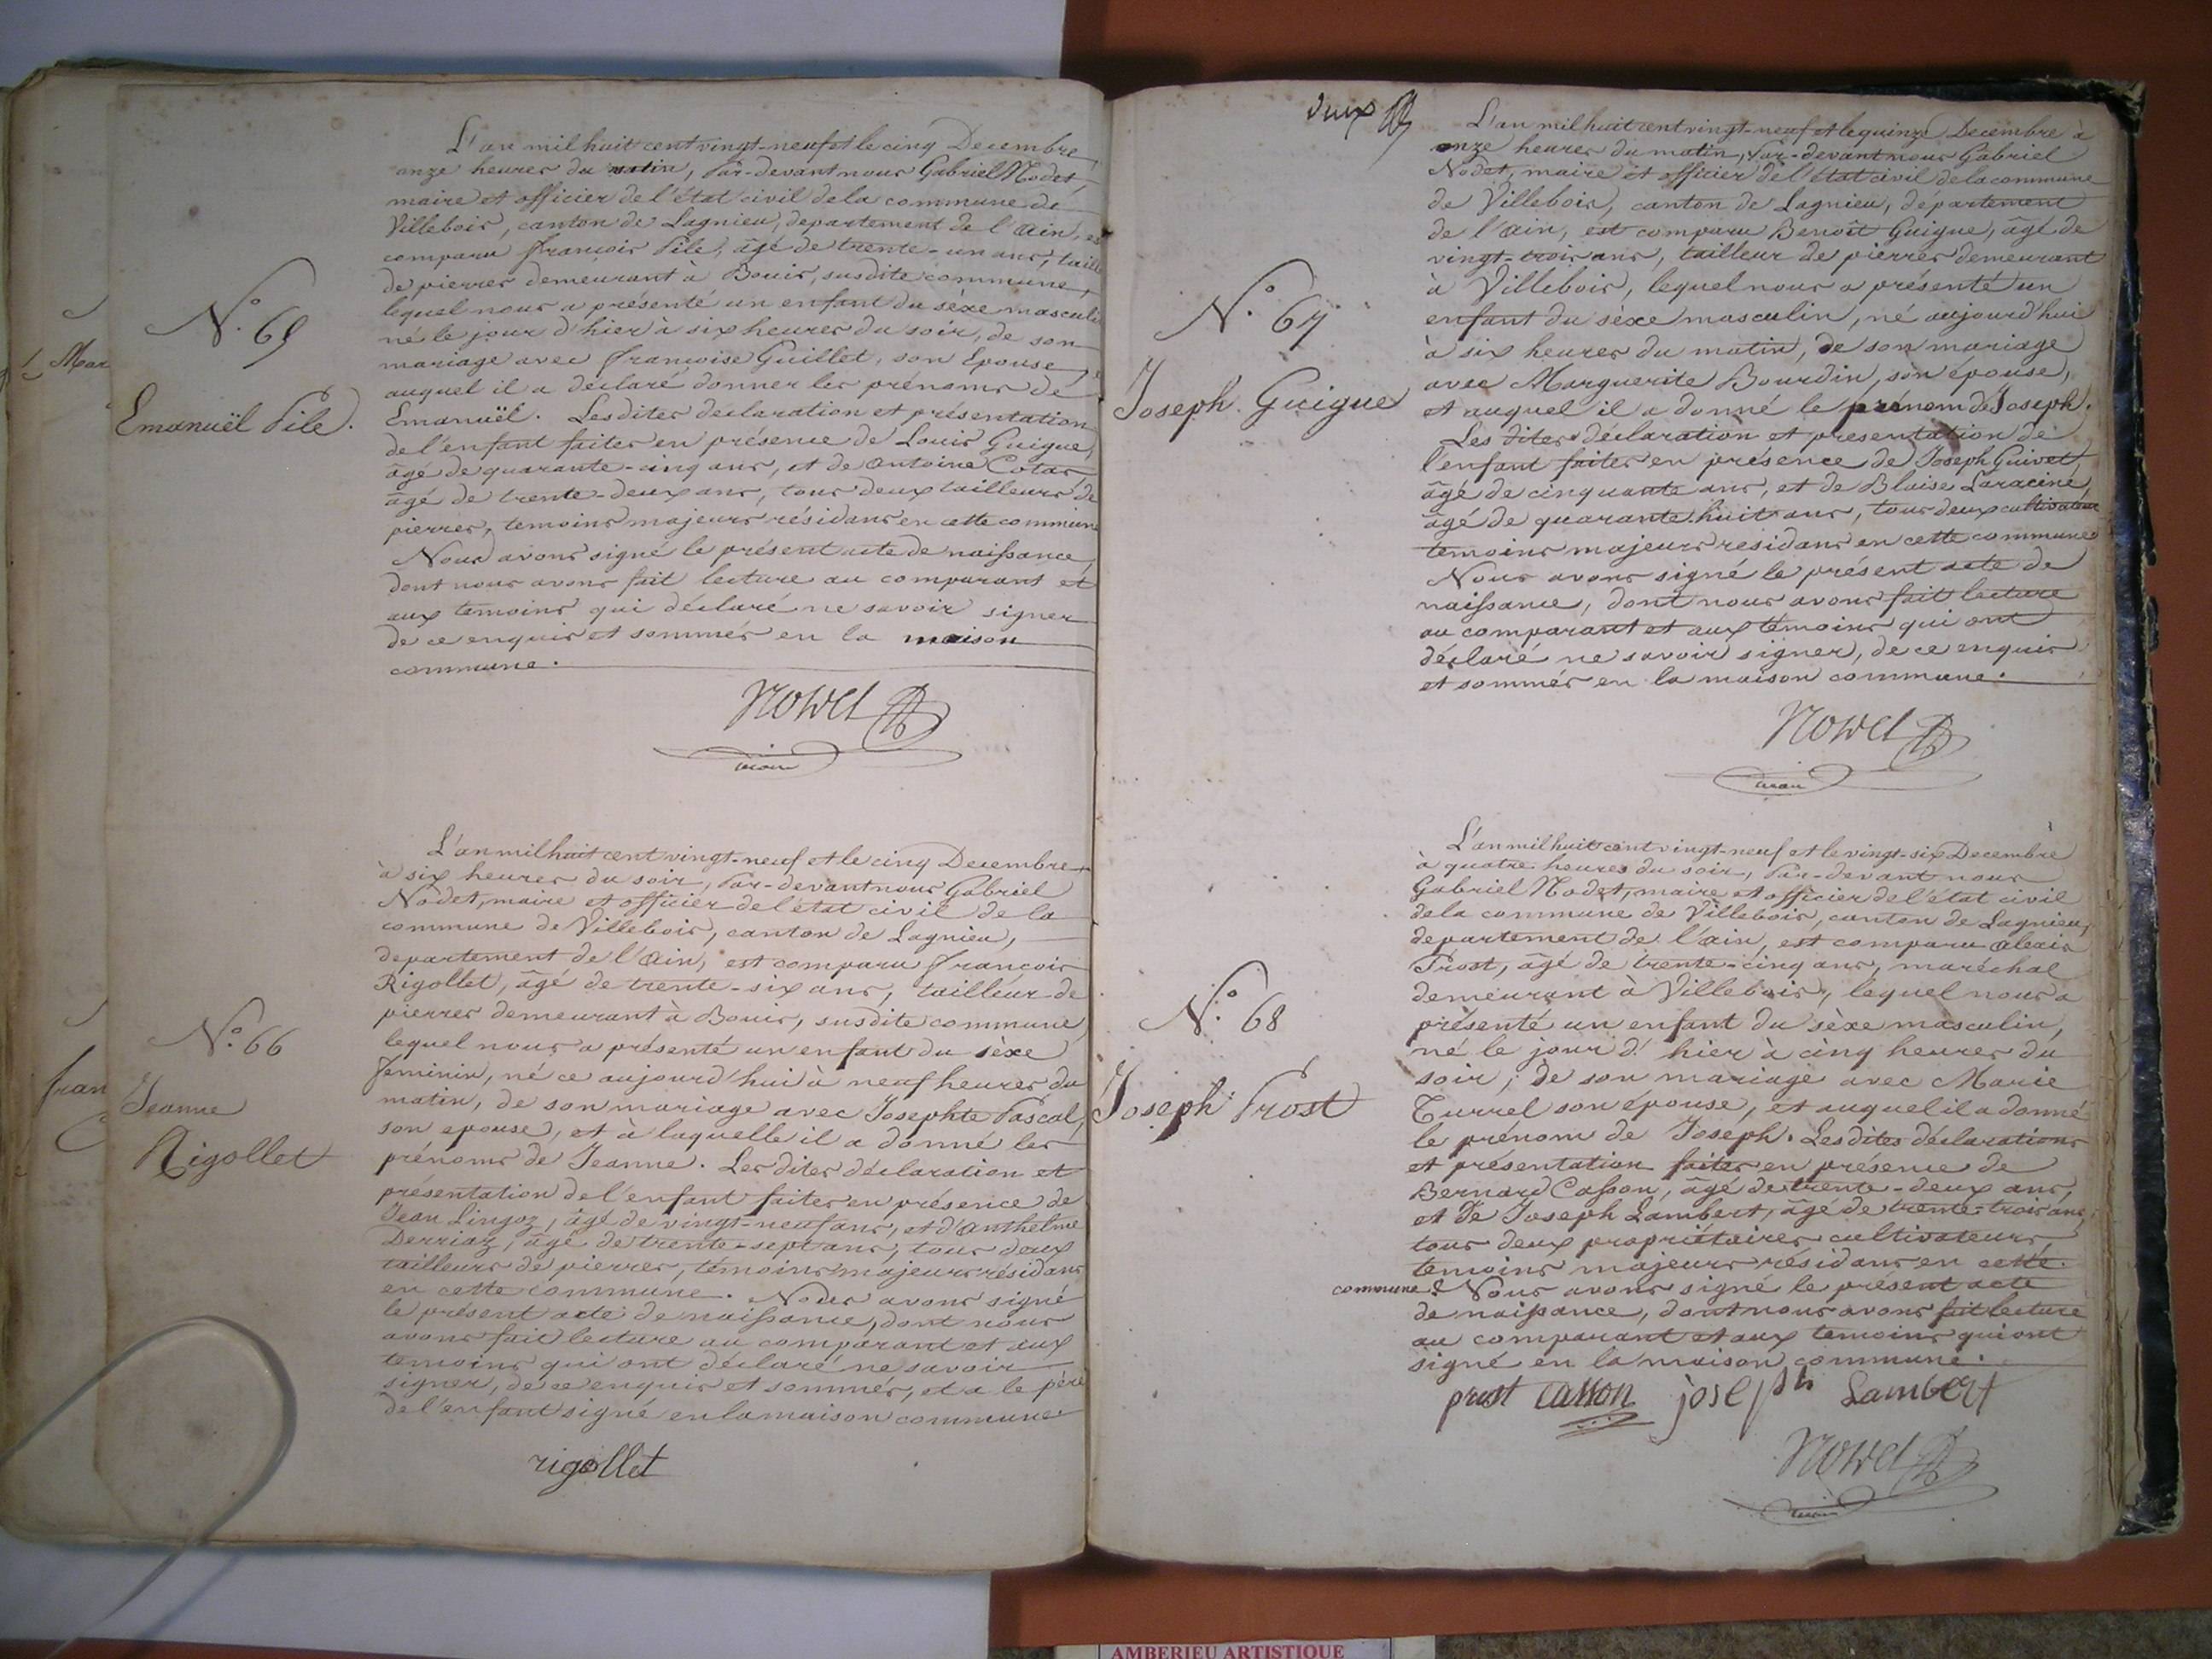 N.° 65
Emanuël Pile.
L'an mil huit cent vingt-neuf et le cinq Decembre,
onze heures du matin, Par-devant nous Gabriel Nodet,
maire et officier de l'état civil de la commune de
Villebois, canton de Lagnieu, departement de l'Ain, est
comparu François Pile, âgé de trente-un ans, taill
de pierres demeurant à Bouis, susdite commune,
lequel nous a présenté un enfant du sèxe masculi
né le jour d'hier à six heures du soir, de son
mariage avec Françoise Guillet, son Epouse,
auquel il a déclaré donner les prénoms de
Emanuël. Les dites declaration et présentation
de l'enfant faites en présence de Louis Guigue,
âgé de quarante-cinq ans, et de Antoine Cotas
âgé de trente-deux ans, tous deux tailleurs de
pierres, temoins majeurs résidans en cette commune
Nous avons signé le présent acte de naissance,
dont nous avons fait lecture au comparant et
aux temoins qui déclaré ne savoir signer
de ce enquis et sommés en la maison
commune.
Nodet
maire
N.° 66
Jeanne
Rigollet
L'an mil huit cent vingt-neuf et le cinq Decembre
à six heures du soir, Par-devant nous Gabriel
Nodet, maire et officier de l'état civil de la
commune de Villebois, canton de Lagnieu,
departement de l'Ain, est comparu François
Rigollet, âgé de trente-six ans, tailleur de
pierres demeurant à Bouis, susdite commune,
lequel nous a présenté un enfant du sèxe
feminin, né ce aujourd'hui à neuf heures du
matin, de son mariage avec Josephte Pascal,
son epouse, et à laquelle il a donné les
prénoms de Jeanne. Les dites déclaration et
présentation de l'enfant faites en présence de
Jean Linjoz, âgé de vingt-neuf ans, et d'Anthelme
Derriaz, âgé de trente-sept ans, tous deux
tailleurs de pierres, temoins majeurs résidans
en cette commune. Nous avons signé
le présent acte de naissance, dont nous
avons fait lecture au comparant et aux
temoins qui ont déclaré ne savoir
signer, de ce enquis et sommés, et a le père
de l'enfant signé en la maison commune
rigollet
Deux
N.° 67
Joseph Guigue
L'an mil huit cent vingt-neuf et le quinze Decembre à
onze heures du matin, Par-devant nous Gabriel
Nodet, maire et officier de l'état civil de la commune
de Villebois, canton de Lagnieu, département
de l'Ain, est comparu Benoît Guigue, âgé de
vingt-trois ans, tailleur de pierres demeurant
à Villebois, lequel nous a présenté un
enfant du sèxe masculin, né aujourd'hui
à six heures du matin, de son mariage
avec Marguerite Bourdin, son épouse,
et auquel il a donné le prénom de Joseph.
Les dites déclaration et presentation de
l'enfant faites en présence de Joseph Guivet,
âgé de cinquante ans, et de Blaise Laracine,
âgé de quarante-huit ans, tous deux cultivateurs
temoins majeurs residans en cette commune
Nous avons signé le présent acte de
naissance, dont nous avons fait lecture
au comparant et aux témoins qui ont
déclaré ne savoir signer, de ce enquis
et sommés en la maison commune.
Nodet
maire
N.° 68
Joseph Prost
L'an mil huit cent vingt-neuf et le vingt-six Decembre
à quatre heures du soir, Par-devant nous
Gabriel Nodet, maire et officier de l'état civil
de la commune de Villebois, canton de Lagnieu,
departement de l'Ain, est comparu Alexis
Prost, âgé de trente-cinq ans, maréchal
demeurant à Villebois, lequel nous a
présenté un enfant du sèxe masculin,
né le jour d'hier à cinq heures du
soir, de son mariage avec Marie
Turrel son épouse, et auquel il a donné
le prénom de Joseph. Les dites déclarations
et présentation faites en présence de
Bernard Casson, âgé de trente-deux ans,
et de Joseph Lambert, âgé de trente-trois ans,
tous deux propriétaires cultivateurs,
temoins majeurs résidans en cette
commune. Nous avons signé le présent acte
de naissance, dont nous avons fait lecture
au comparant et aux temoins qui ont
signé en la maison commune.
prost casson joseph Lambert
Nodet
maire
AMBERIEU ARTISTIQUE